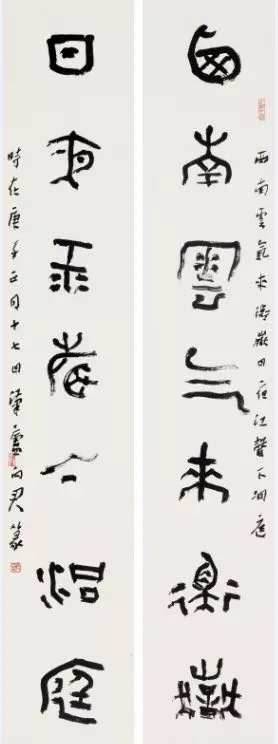 西南雲氣來衡嶽
西南雲氣來衡嶽日夜江聲下洞庭
日夜江聲下洞庭
時在庚子正月十七日廬向君篆